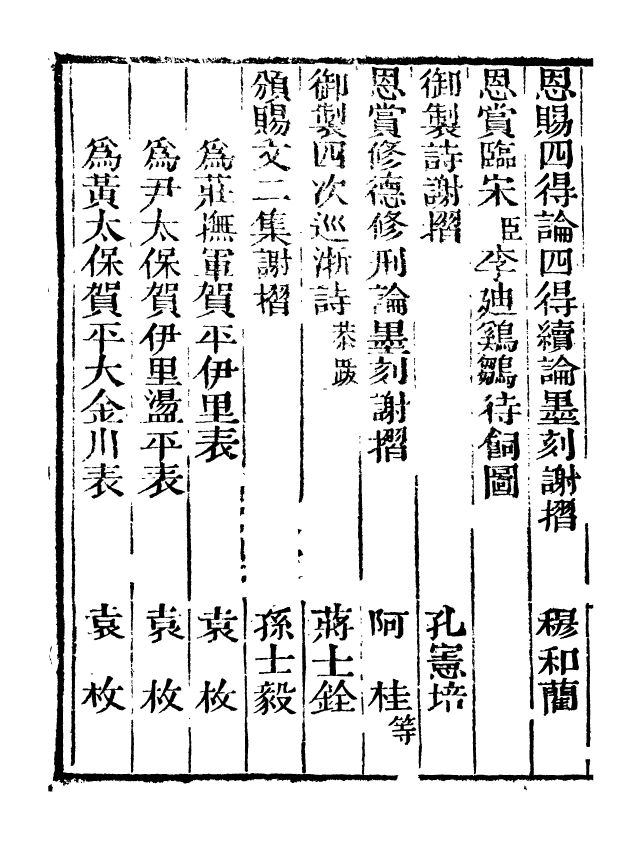 恩賜四得論四得續論墨刻謝摺　穆和藺
恩賞臨宋臣李廸鷄鶵待飼圖
御製詩謝摺　孔憲培
恩賞修德修刑論墨刻謝摺　阿桂等
御製四次巡浙詩恭跋　蔣士銓
頒賜文二集謝摺　孫士毅
爲莊撫軍賀平伊里表　袁枚
爲尹太保賀伊里盪平表　袁枚
爲黃太保賀平大金川表　袁枚